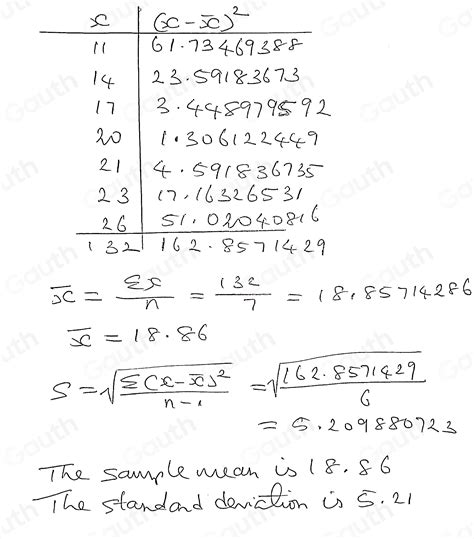 x | (x - x̄)²
11 | 61.73469388
14 | 23.59183673
17 | 3.448979592
20 | 1.306122449
21 | 4.591836735
23 | 17.16326531
26 | 51.02040816
132 | 162.8571429
x̄ = Σx/n = 132/7 = 18.85714286
x̄ = 18.86
S = √(Σ(x - x̄)²/(n - 1)) = √(162.8571429/6)
= 5.209880723
The sample mean is 18.86
The standard deviation is 5.21